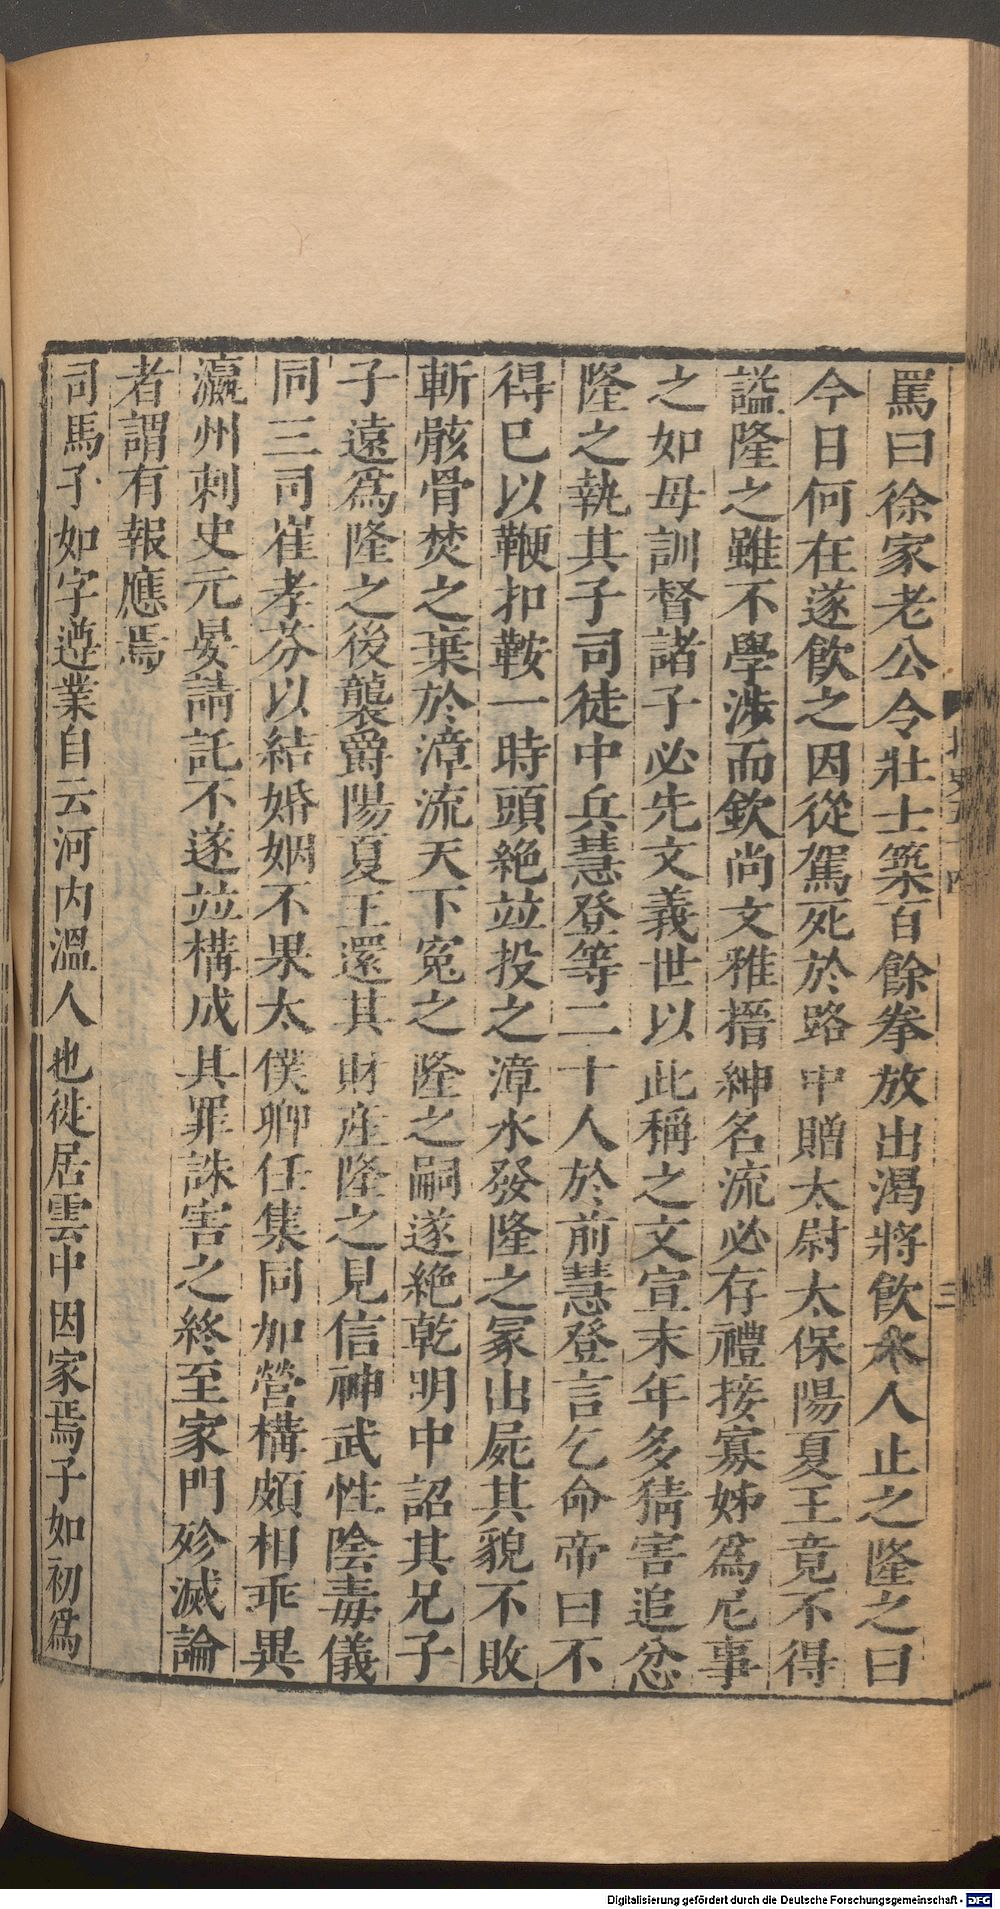 罵曰徐家老公令壯士築百餘拳放出渴將飲水人止之隆之曰
今日何在遂飲之因從駕死於路中贈太尉太保陽夏王竟不得
謚隆之雖不學涉而欽尚文雅搢紳名流必存禮接寡姊爲尼事
之如母訓督諸子必先文義世以此稱之文宣末年多猜害追忿
隆之執其子司徒中兵慧登等二十人於前慧登言乞命帝曰不
得已以鞭扣鞍一時頭絕竝投之漳水發隆之冢出屍其貌不敗
斬骸骨焚之棄於漳流天下寃之隆之嗣遂絕乾明中詔其兄子
子遠爲隆之後襲爵陽夏王還其財產隆之見信神武性陰毒儀
同三司崔孝芬以結婚姻不果太僕卿任集同加營構頗相乖異
瀛州刺史元晏請託不遂竝構成其罪誅害之終至家門殄滅論
者謂有報應焉
司馬子如字遵業自云河内溫人也徙居雲中因家焉子如初爲
三
Digitalisierung gefördert durch die Deutsche Forschungsgemeinschaft - DFG